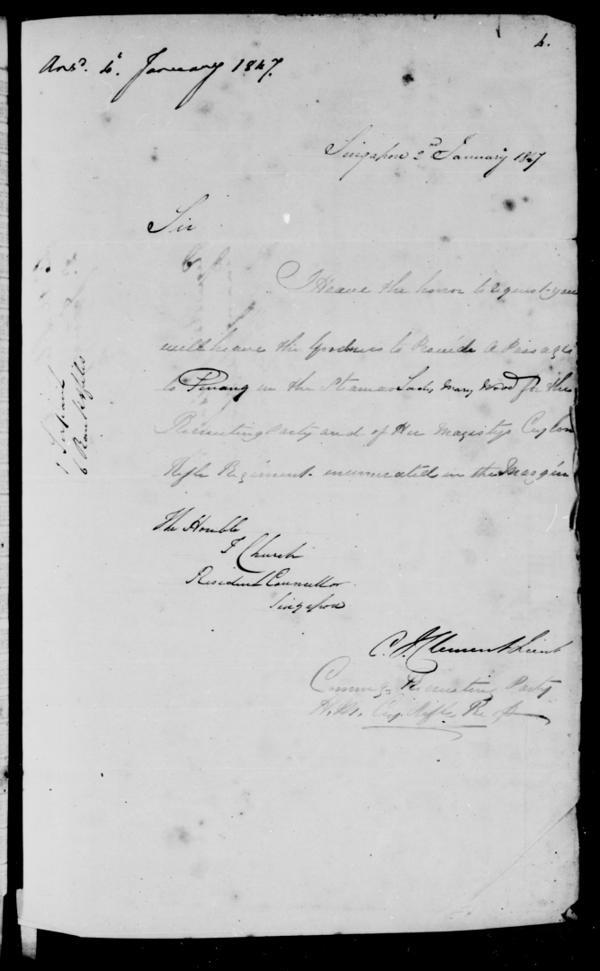 4.
Ansd. 4th January 1847.
Singapore 2nd January 1847
Sir
I Heave the honor to request you
will heave the Goodness to Provide A Passage
to Pinang in the Steamar Lady Mary Wood for the
Recruiting Party and of Her Magistys Ceylon
Rifle Regiment enumerated in the Margin
1 Serjeant
6 Rank & files
The Honble
T Church
Resident Councillor
Singapore
C. J. Clement Lieut
Commg. Recruiting Party
H. M. Cey. Rifle Regt